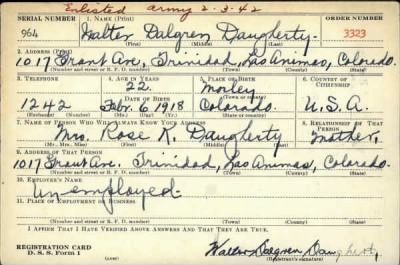 Enlisted Army 2-3-42
SERIAL NUMBER 1. NAME (Print) ORDER NUMBER
964 Walter Dalgren Daugherty. 3323
(First) (Middle) (Last)
2. ADDRESS (Print)
1017 Grant Ave, Trinidad, Las Animas, Colorado.
(Number and street or R. F. D. number) (Town) (County) (State)
3. TELEPHONE 4. AGE IN YEARS 5. PLACE OF BIRTH 6. COUNTRY OF CITIZENSHIP
22 Morley
DATE OF BIRTH (Town or county)
1242 Feb. 6 1918 Colorado. U.S.A.
(Exchange) (Number) (Mo.) (Day) (Yr.) (State or country)
7. NAME OF PERSON WHO WILL ALWAYS KNOW YOUR ADDRESS 8. RELATIONSHIP OF THAT PERSON
Mrs. Rose K. Daugherty Mother.
(Mr., Mrs., Miss) (First) (Middle) (Last)
9. ADDRESS OF THAT PERSON
1017 Grant Ave. Trinidad, Las Animas, Colorado.
(Number and street or R. F. D. number) (Town) (County) (State)
10. EMPLOYER'S NAME
Unemployed.
11. PLACE OF EMPLOYMENT OR BUSINESS
(Number and street or R. F. D. number) (Town) (County) (State)
I AFFIRM THAT I HAVE VERIFIED ABOVE ANSWERS AND THAT THEY ARE TRUE.
REGISTRATION CARD
D. S. S. Form 1 Walter Dalgren Daugherty
(Registrant's signature)